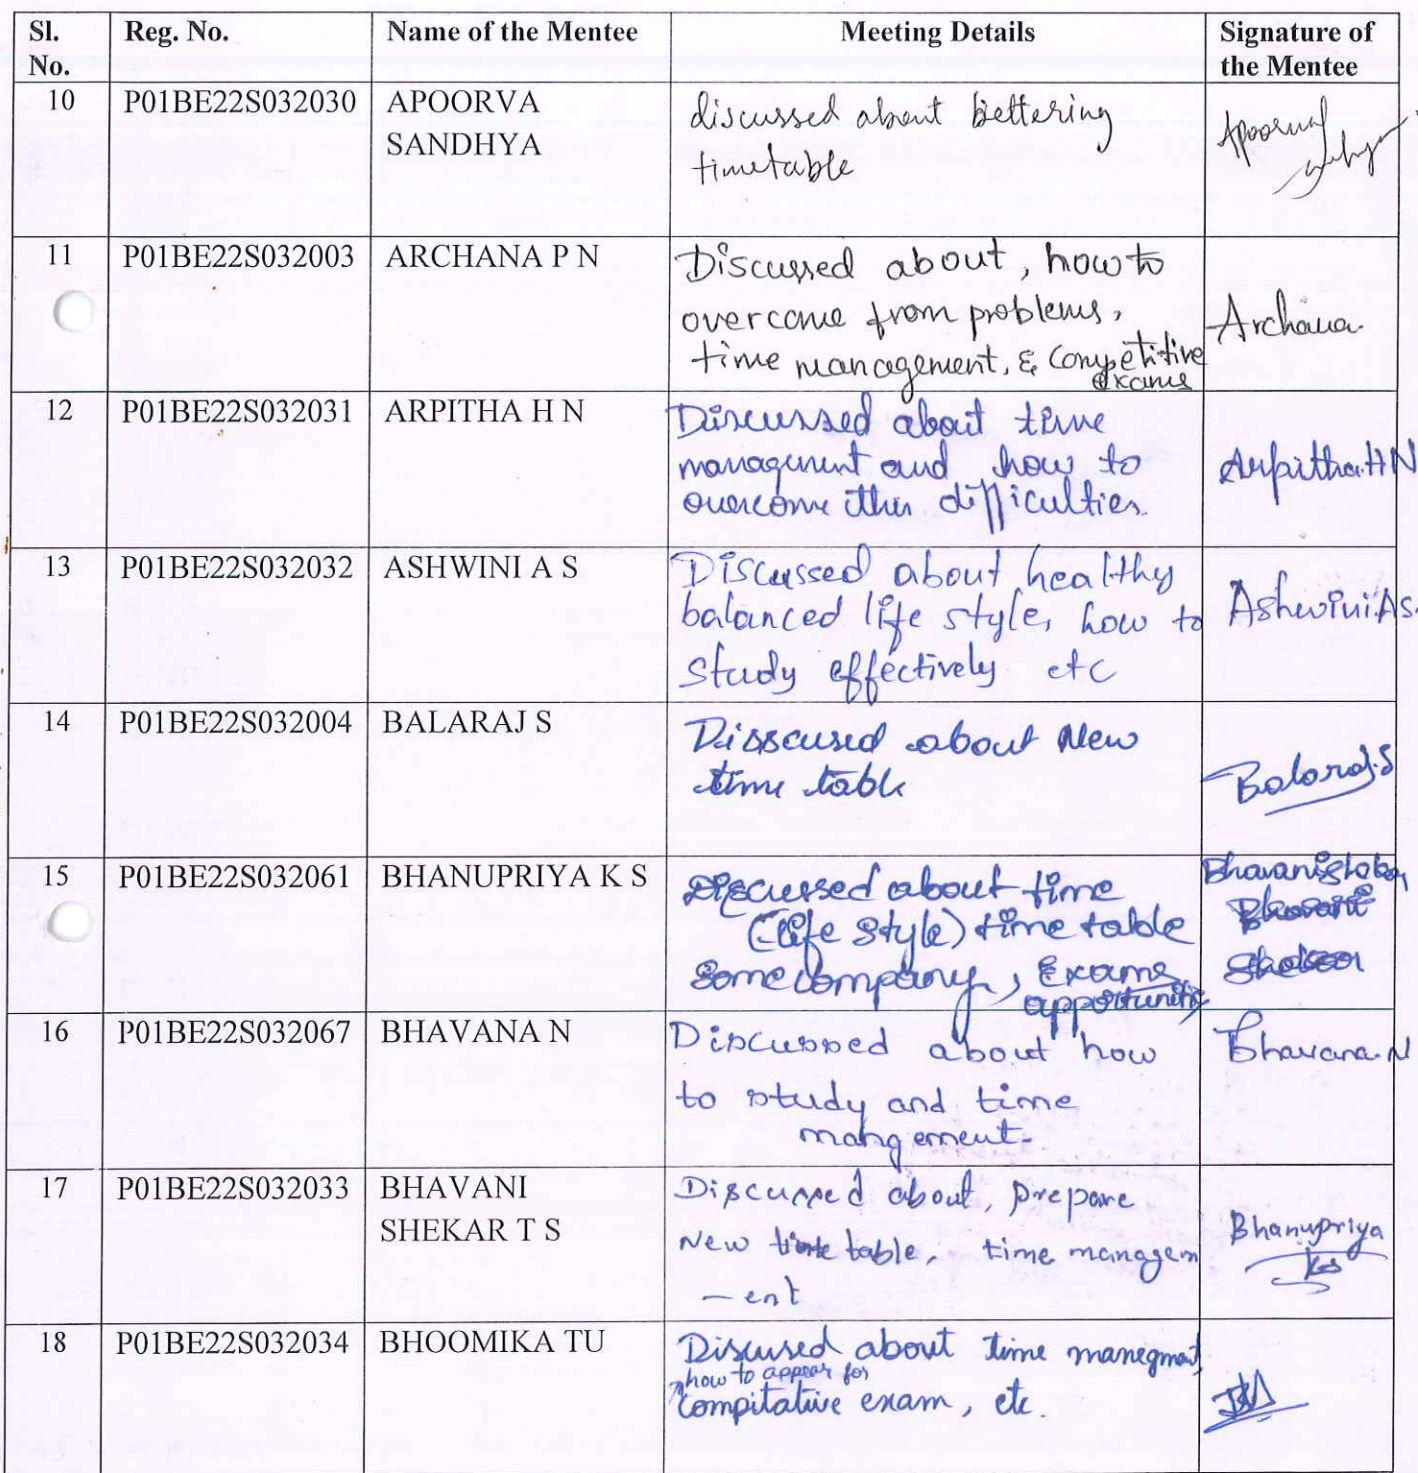 Sl. No. Reg. No. Name of the Mentee Meeting Details Signature of the Mentee
10 P01BE22S032030 APOORVA discussed about bettering
SANDHYA timetable
11 P01BE22S032003 ARCHANA P N Discussed about, how to
overcome from problems, Archana
time management, & Competitive
exams
12 P01BE22S032031 ARPITHA H N Discussed about time
managument and how to Arpitha.H N
overcome ther difficulties.
13 P01BE22S032032 ASHWINI A S Discussed about healthy
balanced life style, how to Ashwini.A S
study effectively etc
14 P01BE22S032004 BALARAJ S Disscused about New
time table Balaraj.S
15 P01BE22S032061 BHANUPRIYA K S Discussed about time
(life style) time table
some company, Exams
opportunity
16 P01BE22S032067 BHAVANA N Discussed about how Bhavana.N
to study and time
mangement.
17 P01BE22S032033 BHAVANI Discussed about, prepare
SHEKAR T S New time table, time managem Bhanupriya
- ent KS
18 P01BE22S032034 BHOOMIKA TU Discused about time manegment,
how to appear for
compitative exam, etc.